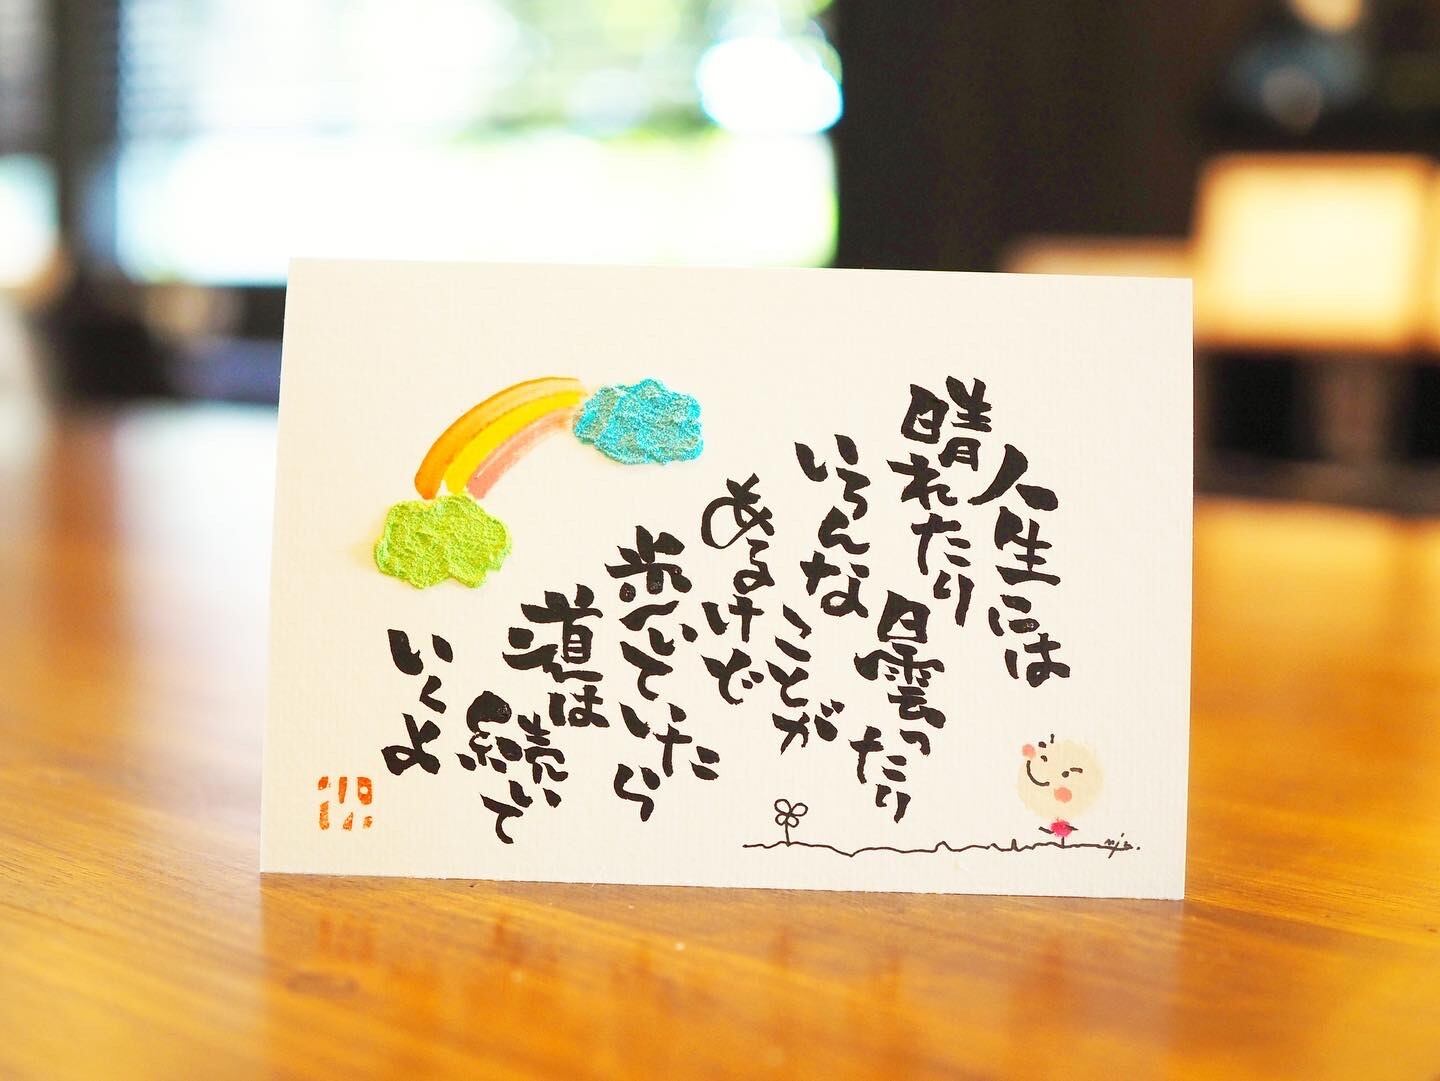 人生には
晴れたり曇ったり
いろんなことが
あるけど
歩いていたら
道は続いて
いくよ